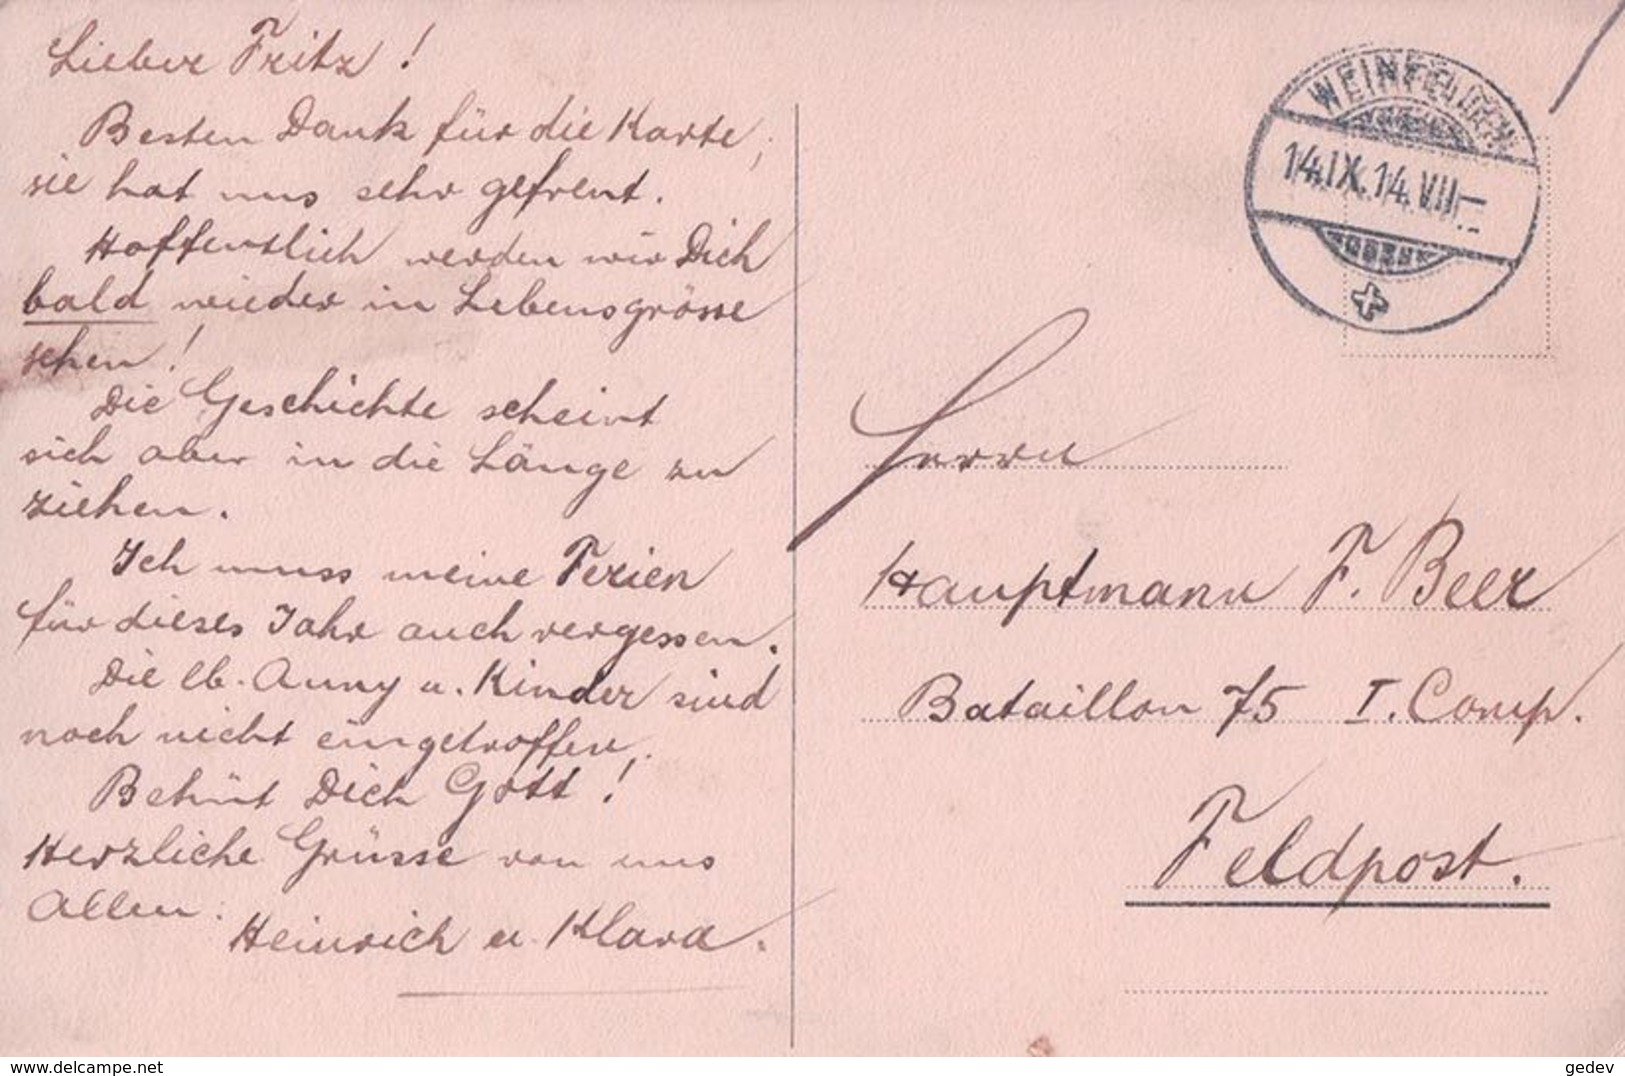 Lieber Fritz!
Besten Dank für die Karte,
sie hat uns sehr gefreut.
Hoffentlich werden wir Dich
bald wieder in Lebensgrösse
sehen!
Die Geschichte scheint
sich aber in die Länge zu
ziehen.
Ich muss meine Ferien
für dieses Jahr auch vergessen.
Die lb. Anny u. Kinder sind
noch nicht eingetroffen,
Behüt Dich Gott!
Herzliche Grüsse von uns
Allen.
Heinrich u. Klara.
WEINFELDEN
14.IX.14.VII–
Herrn
Hauptmann F. Beer
Bataillon 75 I. Comp.
Feldpost.
gedev